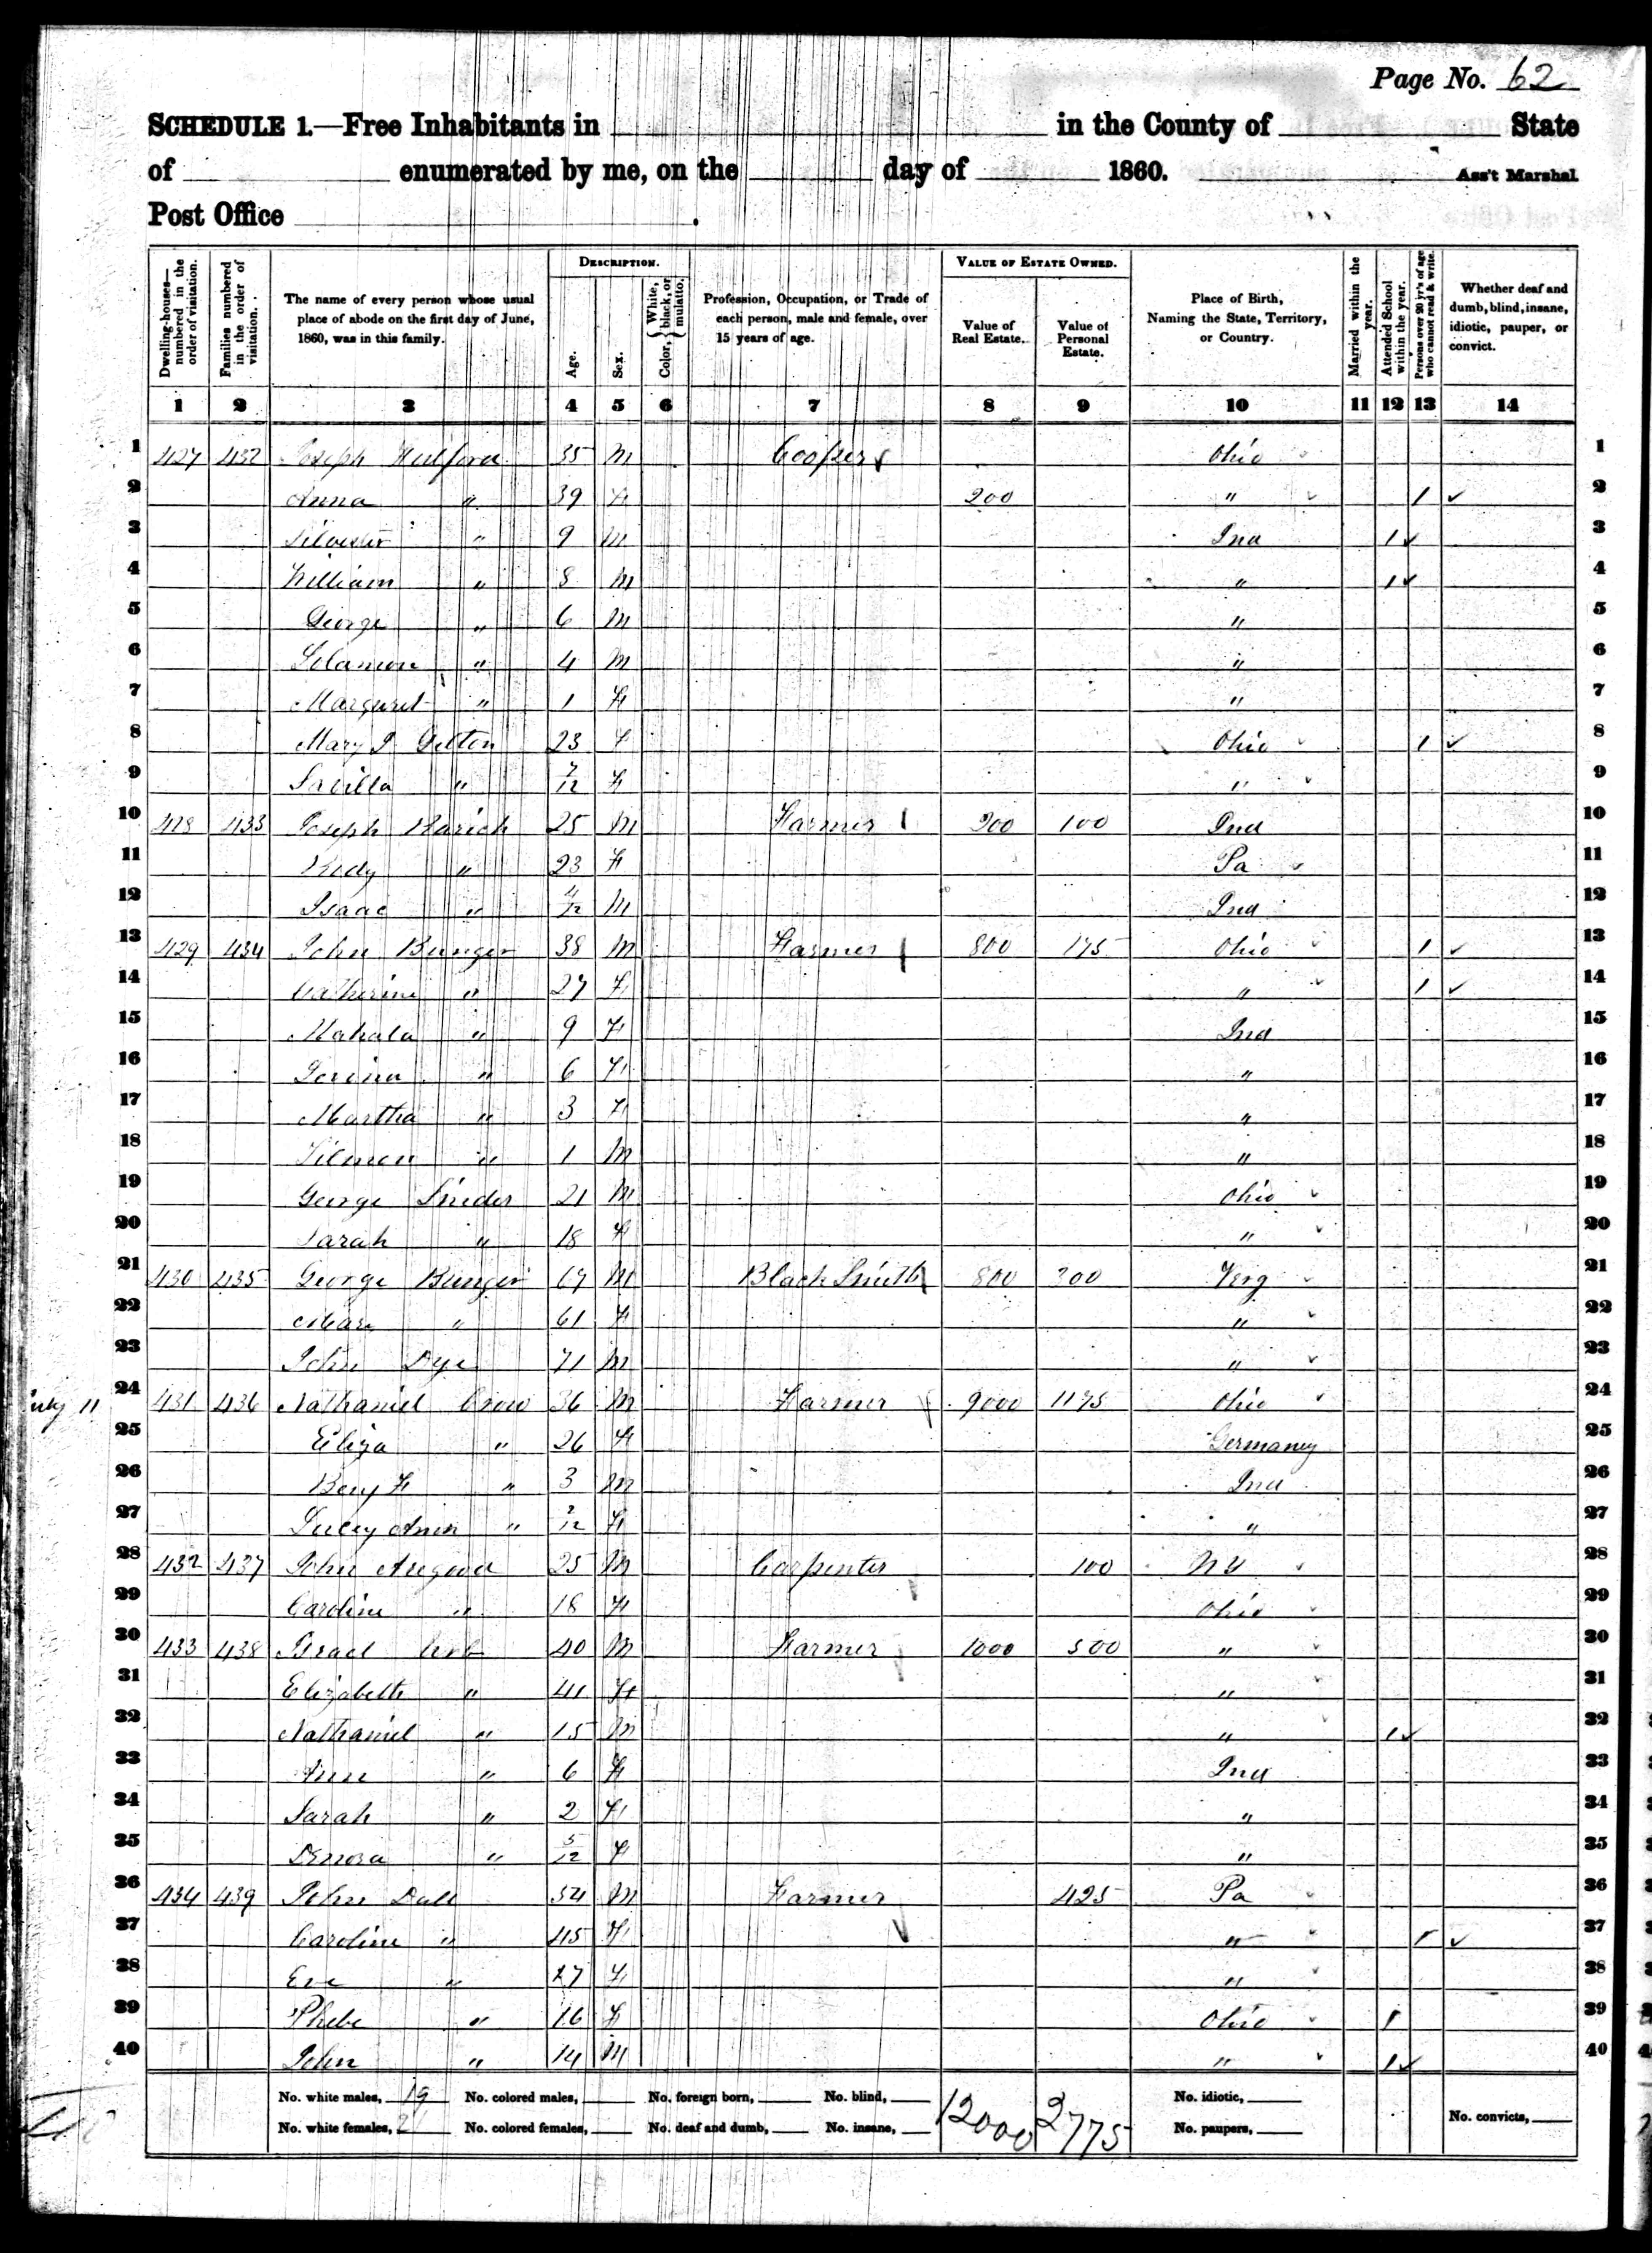 Page No. 62
SCHEDULE 1.—Free Inhabitants in in the County of State
of enumerated by me, on the day of 1860. Ass't Marshal
Post Office .
Dwelling-houses—numbered in the order of visitation.
Families numbered in the order of visitation.
The name of every person whose usual place of abode on the first day of June, 1860, was in this family.
DESCRIPTION.
Age.
Sex.
Color, { White, black, or mulatto.
Profession, Occupation, or Trade of each person, male and female, over 15 years of age.
VALUE OF ESTATE OWNED.
Value of Real Estate.
Value of Personal Estate.
Place of Birth, Naming the State, Territory, or Country.
Married within the year.
Attended School within the year.
Persons over 20 yr's of age who cannot read & write.
Whether deaf and dumb, blind, insane, idiotic, pauper, or convict.
1 2 3 4 5 6 7 8 9 10 11 12 13 14
1 427 432 Joseph 35 M Cooper Ohio 1
2 Anna " 39 F 200 " 1 ✓ 2
3 Silvester " 9 M Ind 1 ✓ 3
4 William " 8 M " 1 ✓ 4
5 George " 6 M " 5
6 " 4 M " 6
7 Margaret " 1 F " 7
8 Mary J 23 F Ohio 1 ✓ 8
9 Savilla " 7/12 F " 9
10 428 433 Joseph 25 M Farmer 200 100 Ind 10
11 " 23 F Pa 11
12 Isaac " 4/12 M Ind 12
13 429 434 John Bunger 38 M Farmer 800 175 Ohio 1 ✓ 13
14 Catherine " 27 F " 1 ✓ 14
15 Mahala " 9 F Ind 15
16 " 6 F " 16
17 Martha " 3 F " 17
18 " 1 M " 18
19 George Snider 21 M Ohio 19
20 Sarah " 18 F " 20
21 430 435 George Bunger 67 M Black Smith 800 200 Verg 21
22 " 61 F " 22
23 John Dye 71 M " 23
July 11 24 431 436 Nathaniel Crow 36 M Farmer 9000 1175 Ohio 24
25 Eliza " 26 F Germaney 25
26 Benj F " 3 M Ind 26
27 Lucey Ann " 2/12 F " 27
28 432 437 John 25 M Carpenter 100 NY 28
29 Caroline " 18 F Ohio 29
30 433 438 Israel 40 M Farmer 1000 500 " 30
31 Elizabeth " 41 F " 31
32 Nathaniel " 15 M " 1 ✓ 32
33 Ann " 6 F Ind 33
34 Sarah " 2 F " 34
35 " 5/12 F " 35
36 434 439 John Dull 54 M Farmer 425 Pa 36
37 Caroline " 45 F " 1 ✓ 37
38 Eve " F " 38
39 Phebe " 16 F Ohio 1 39
40 John " 14 M " 1 ✓ 40
No. white males, 19 No. colored males, No. foreign born, No. blind, 12000 2775 No. idiotic,
No. white females, 21 No. colored females, No. deaf and dumb, No. insane, No. paupers, No. convicts,